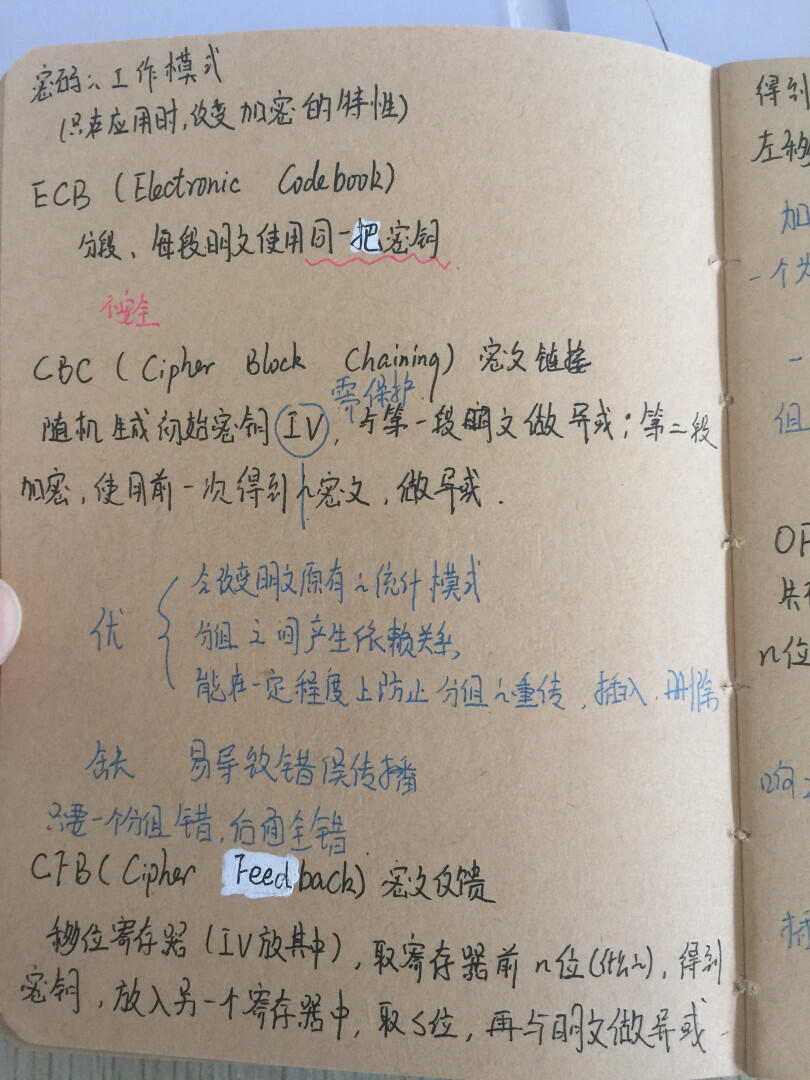 密码的工作模式
(只在应用时,改变加密的特性)
ECB (Electronic Codebook)
分段、每段明文使用同一把密钥
CBC (Cipher Block Chaining) 密文链接
需保护
随机生成初始密钥IV,与第一段明文做异或;第二段
加密,使用前一次得到的密文,做异或.
优
会改变明文原有的统计模式
分组之间产生依赖关系
能在一定程度上防止分组的重传、插入、删除
缺 易导致错误传播
只要一个分组错,后面全错
CFB (Cipher Feedback) 密文反馈
移位寄存器 (IV放其中), 取寄存器前n位, 得到
密钥, 放入另一个寄存器中, 取S位, 再与明文做异或
得到
左移
加
一个为
一
组
OF
共
n位
响